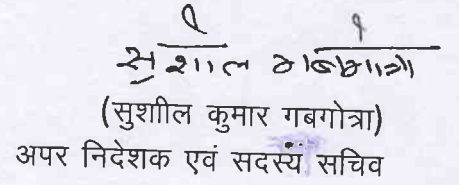 सुशील गबगोत्रा
(सुशाील कुमार गबगोत्रा)
अपर निदेशक एवं सदस्य सचिव